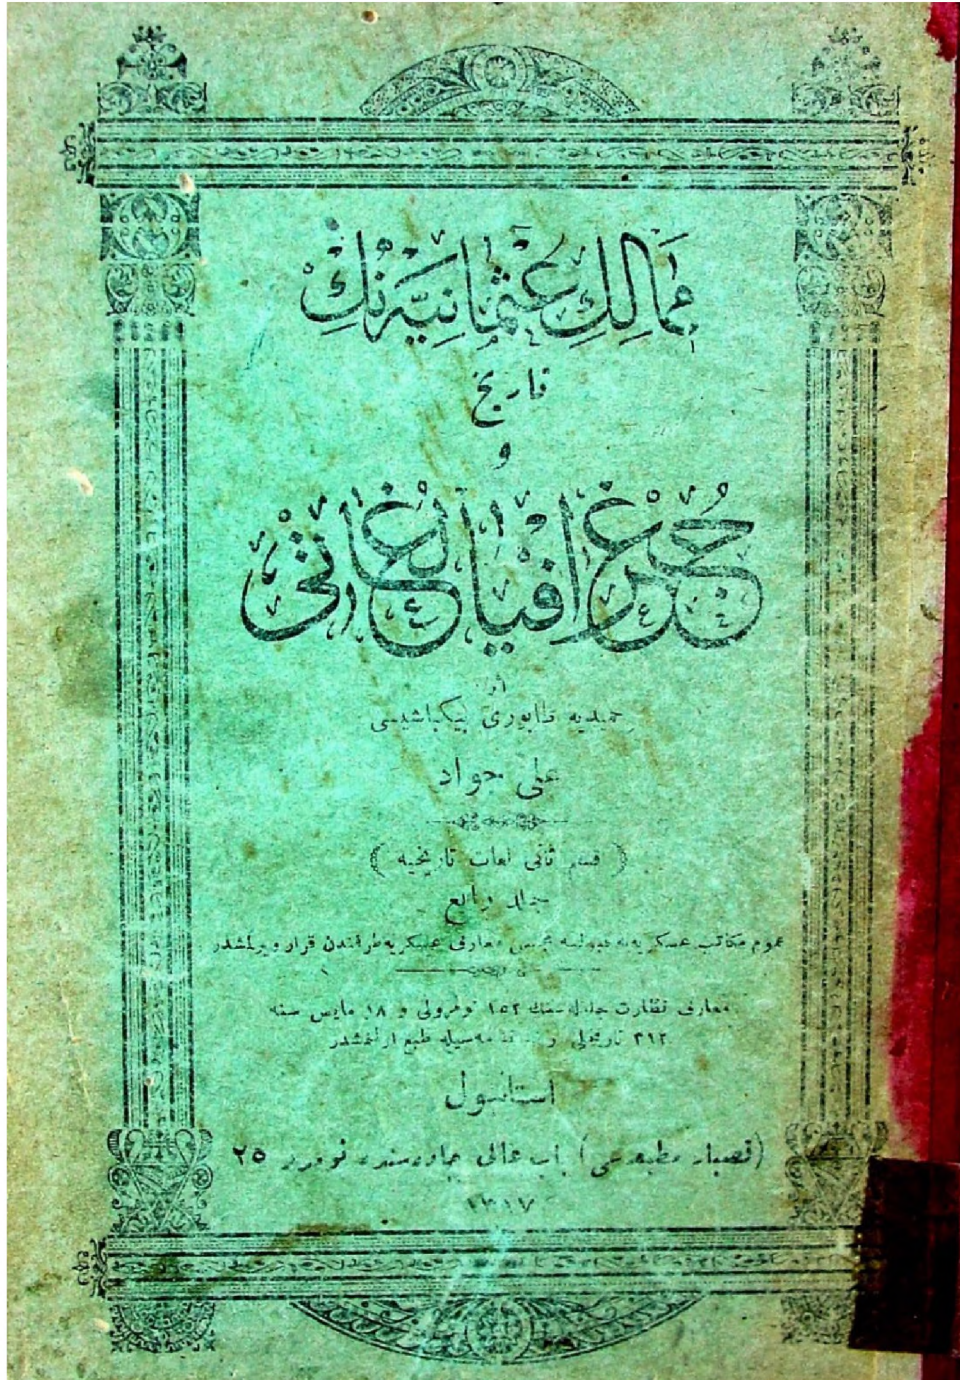 ممالك عثمانيه نك
تاريخ
و
جغرافيا لغاتى
اثر
حميديه طابورى بيكباشيسى
على جواد
( قسم ثانى لغات تاريخيه )
جلد رابع
عموم مكاتب عسكريه يه قبولنه مجلس معارف عسكريه طرفندن قرار ويرلمشدر
معارف نظارت جليله سنك ١٥٢ نومرولى و ١٨ مايس سنه
٣١٢ تاريخلى رخصتنامه سيله طبع اولنمشدر
استانبول
(قصبار مطبعه سى) باب عالى جاده سنده نومرو ٢٥
١٣١٧